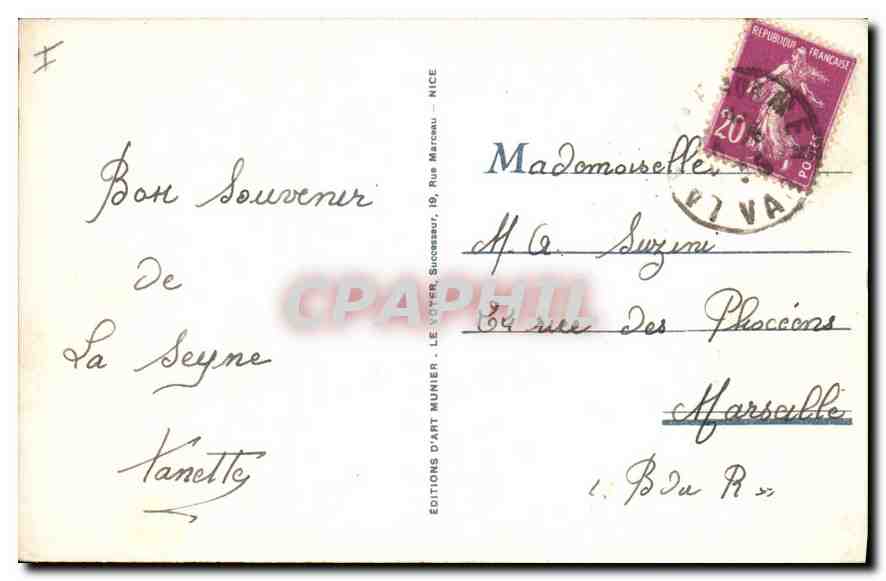 I
Bon Souvenir
de
La Seyne
EDITIONS D'ART MUNIER - LE VOYER, Successeur, 19, Rue Marceau - NICE
REPUBLIQUE FRANÇAISE
20c
POSTES
LA
VAR
Mademoiselle
M. A. Suzini
24 rue des Phocéens
Marseille
(B du R)
CPAPHIL